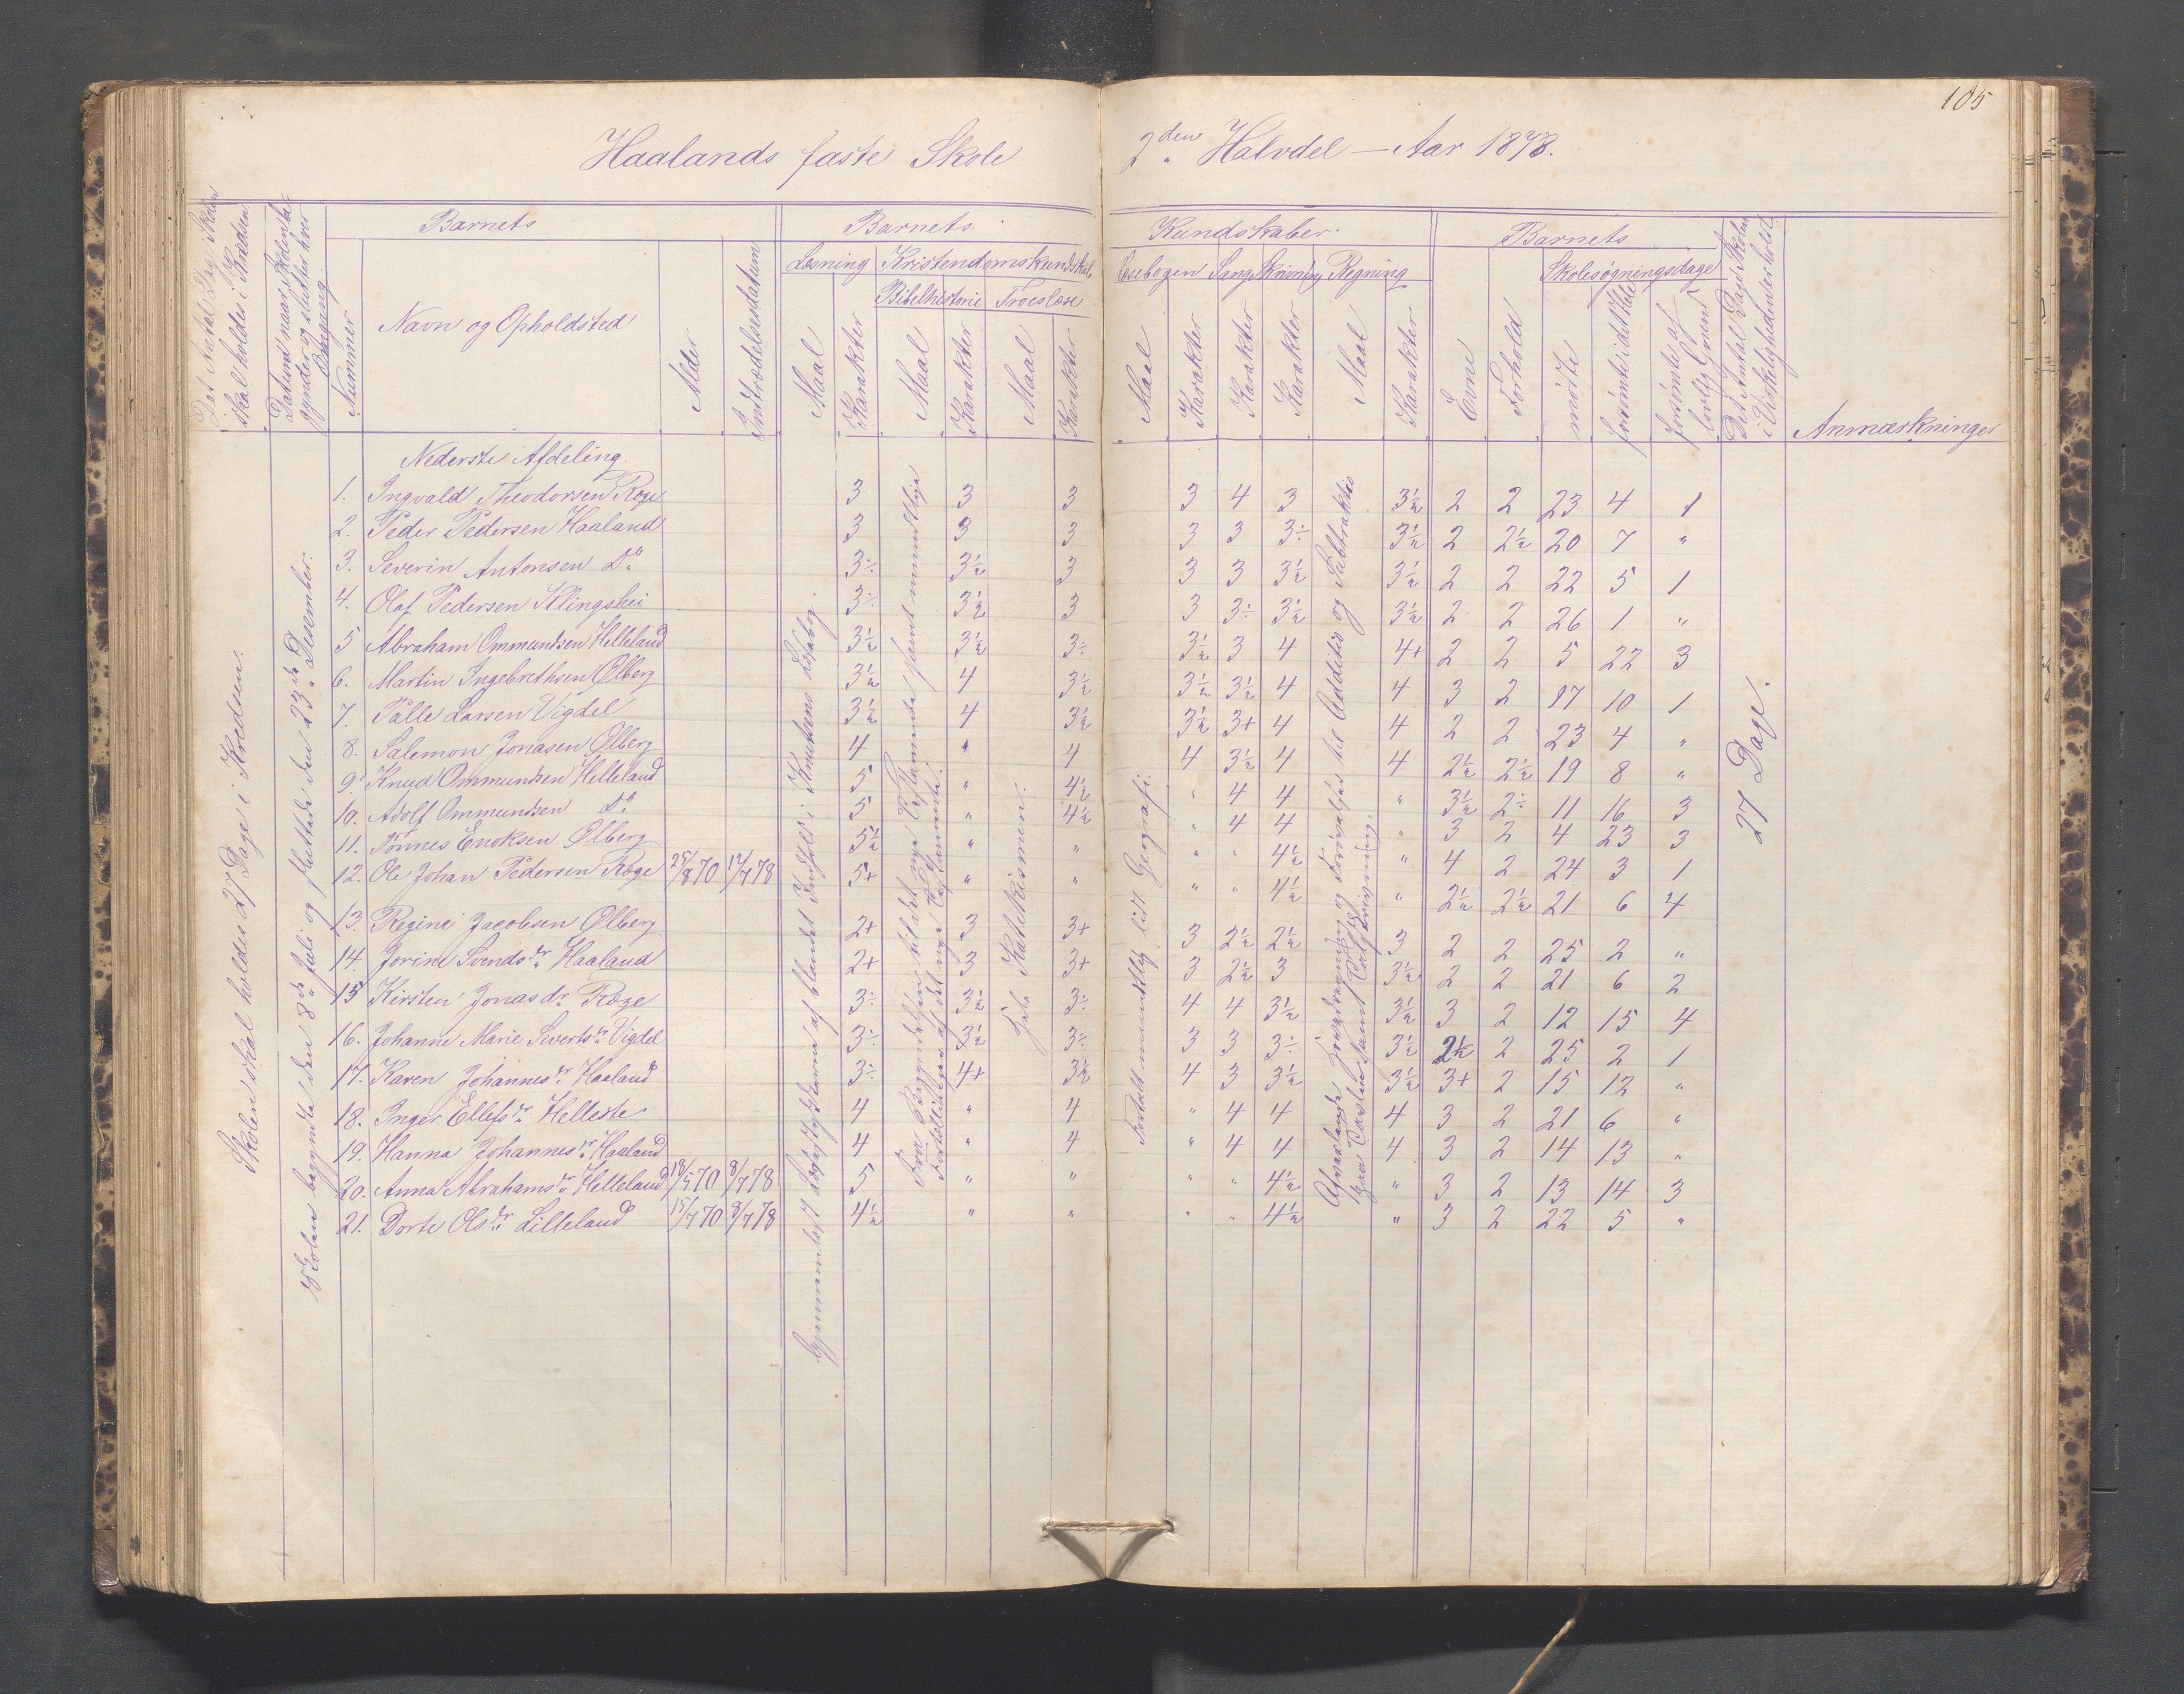 105
Haalands faste Skole 2den Halvdel — Aar 1878.
Det Antal Dage Skolen skal holdes i Kredsen
Datum naar Skolen begynder og slutter hver Omgang
Barnets
Nummer
Navn og Opholdsted
Alder
Indtrædelsesdatum
Barnets Kundskaber
Læsning
Maal
Karakter
Kristendomskundskab
Bibelhistorie
Maal
Karakter
Troeslære
Maal
Karakter
Læsebogen
Maal
Karakter
Sang
Karakter
Skrivning
Karakter
Regning
Maal
Karakter
Barnets
Evne
Forhold
Skolesøgningsdage
mødte
forsømte i det Hele
forsømte af lovlig Grund
Det Antal Dage Skolen i Virkeligheden er holdt
Anmærkninger
Skolen skal holdes 27 Dage i Kredsen.
Skolen begyndte den 8de Juli og sluttede den 23de Desember.
Gjennemlæst Læsestykkerne af blandet Indhold i Knutsens Læsebog.
Fra Begyndelsen til det nye Testamente samt mundtlige Fortællinger af det nye Testamente.
Hele Katekismen.
Fortalt mundtlig lidt Geografi.
Afvexlende Hovedregning og Forøvelser til Addition og Subtraktion paa Tavlen samt Talskrivning.
27 Dage.
Nederste Afdeling.
1. Ingvald Theodorsen Røge 3 3 3 3 4 3 3½ 2 2 23 4 1
2. Peder Pedersen Haaland 3 3 3 3 3 3÷ 3½ 2 2½ 20 7 "
3. Severin Antonsen Do 3÷ 3½ 3 3 3 3½ 3½ 2 2 22 5 1
4. Olaf Pedersen Klingshei 3÷ 3½ 3 3 3÷ 3½ 3½ 2 2 26 1 "
5 Abraham Ommundsen Helleland 3½ 3½ 3÷ 3½ 3 4 4+ 2 2 5 22 3
6. Martin Ingebrethsen Ølberg 3½ 4 3½ 3½ 3½ 4 4 3 2 17 10 1
7. Tølle Larsen Vigdel 3½ 4 3½ 3½ 3+ 4 4 2 2 23 4 "
8. Salemon Jonasen Ølberg 4 " 4 4 3½ 4 4 2½ 2½ 19 8 "
9. Knud Ommundsen Helleland 5 " 4½ " 4 4 " 3½ 2÷ 11 16 3
10. Adolf Ommundsen Do 5 " 4½ " 4 4 " 3 2 4 23 3
11. Tönnes Enoksen Ølberg 5½ " " " " 4½ " 4 2 24 3 1
12. Ole Johan Pedersen Røge 25/8 70 12/7 78 5+ " " " " 4½ " 2½ 2½ 21 6 4
13. Regine Jacobsen Ølberg 2+ 3 3+ 3 2½ 2½ 3 2 2 25 2 "
14. Jorine Svendsdr Haaland 2+ 3 3+ 3 2½ 3 3½ 2 2 21 6 2
15 Kirsten Jonasdr Røge 3÷ 3½ 3÷ 4 4 3½ 3½ 3 2 12 15 4
16. Johanne Marie Sivertsdr Vigdel 3÷ 3½ 3÷ 3 3 3÷ 3½ 2½ 2 25 2 1
17. Karen Johannesdr Haaland 3÷ 4+ 3½ 4 3 3½ 3½ 3+ 2 15 12 "
18. Inger Ellefsdr Helleste 4 " 4 " 4 4 4 3 2 21 6 "
19. Hanna Johannesdr Haaland 4 " 4 " 4 4 4 3 2 14 13 "
20. Anna Abrahamsdr Helleland 18/5 70 8/7 78 5 " " " " 4½ " 3 2 13 14 3
21. Dorte Olsdr Lilleland 15/7 70 8/7 78 4½ " " " " 4½ " 3 2 22 5 "